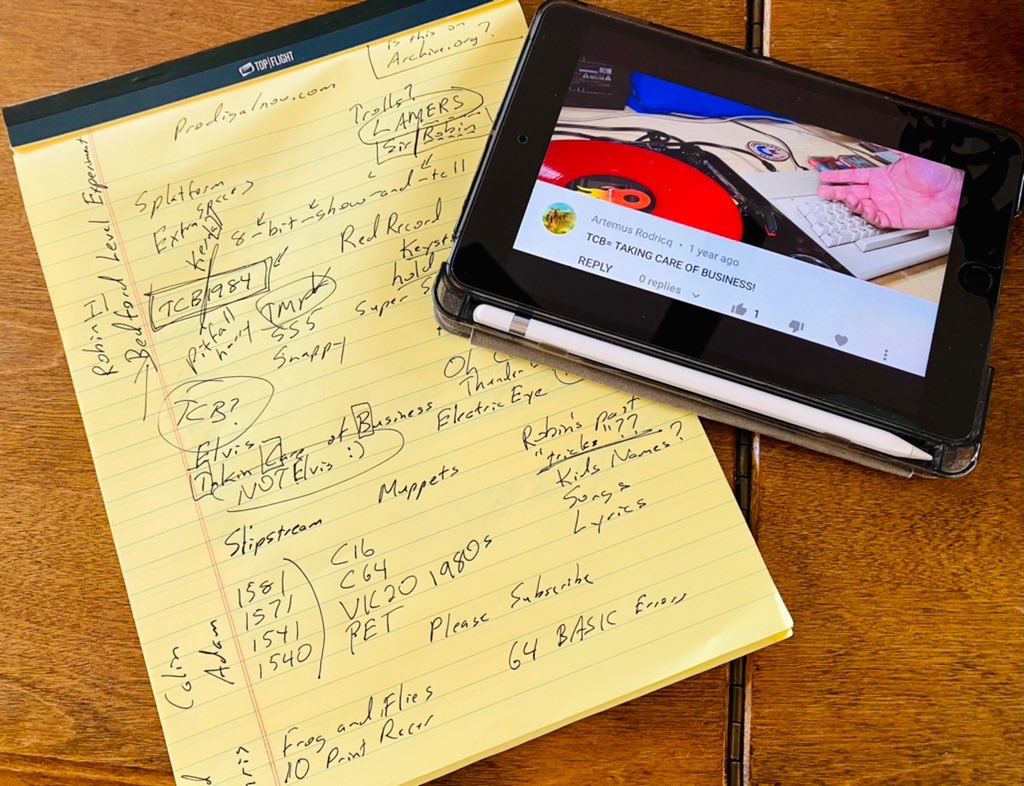 TOP FLIGHT
is this on
Archive.org?
Prodigalnow.com
Trolls?
LAMERS
Sir Robin
Splatform
Extra spaces
8-bit-show-and-tell
Red Record
hold
Super
Robin II
Bedford Level Experiment
TCB 1984
TMP
SSS
Snappy
TCB?
Elvis
Takin Care of Business
NOT Elvis :)
Oh
Electric Eye
Robin's Past
"tricks"??
Kids Names?
Songs
Lyrics
Slipstream
Muppets
1581
1571
1541
1540
C16
C64
VIC20 1980s
PET
Please Subscribe
64 BASIC Errors
Colin
Adam
Frog and Flies
10 Print Racer
Artemus Rodricq • 1 year ago
TCB= TAKING CARE OF BUSINESS!
REPLY
0 replies
1